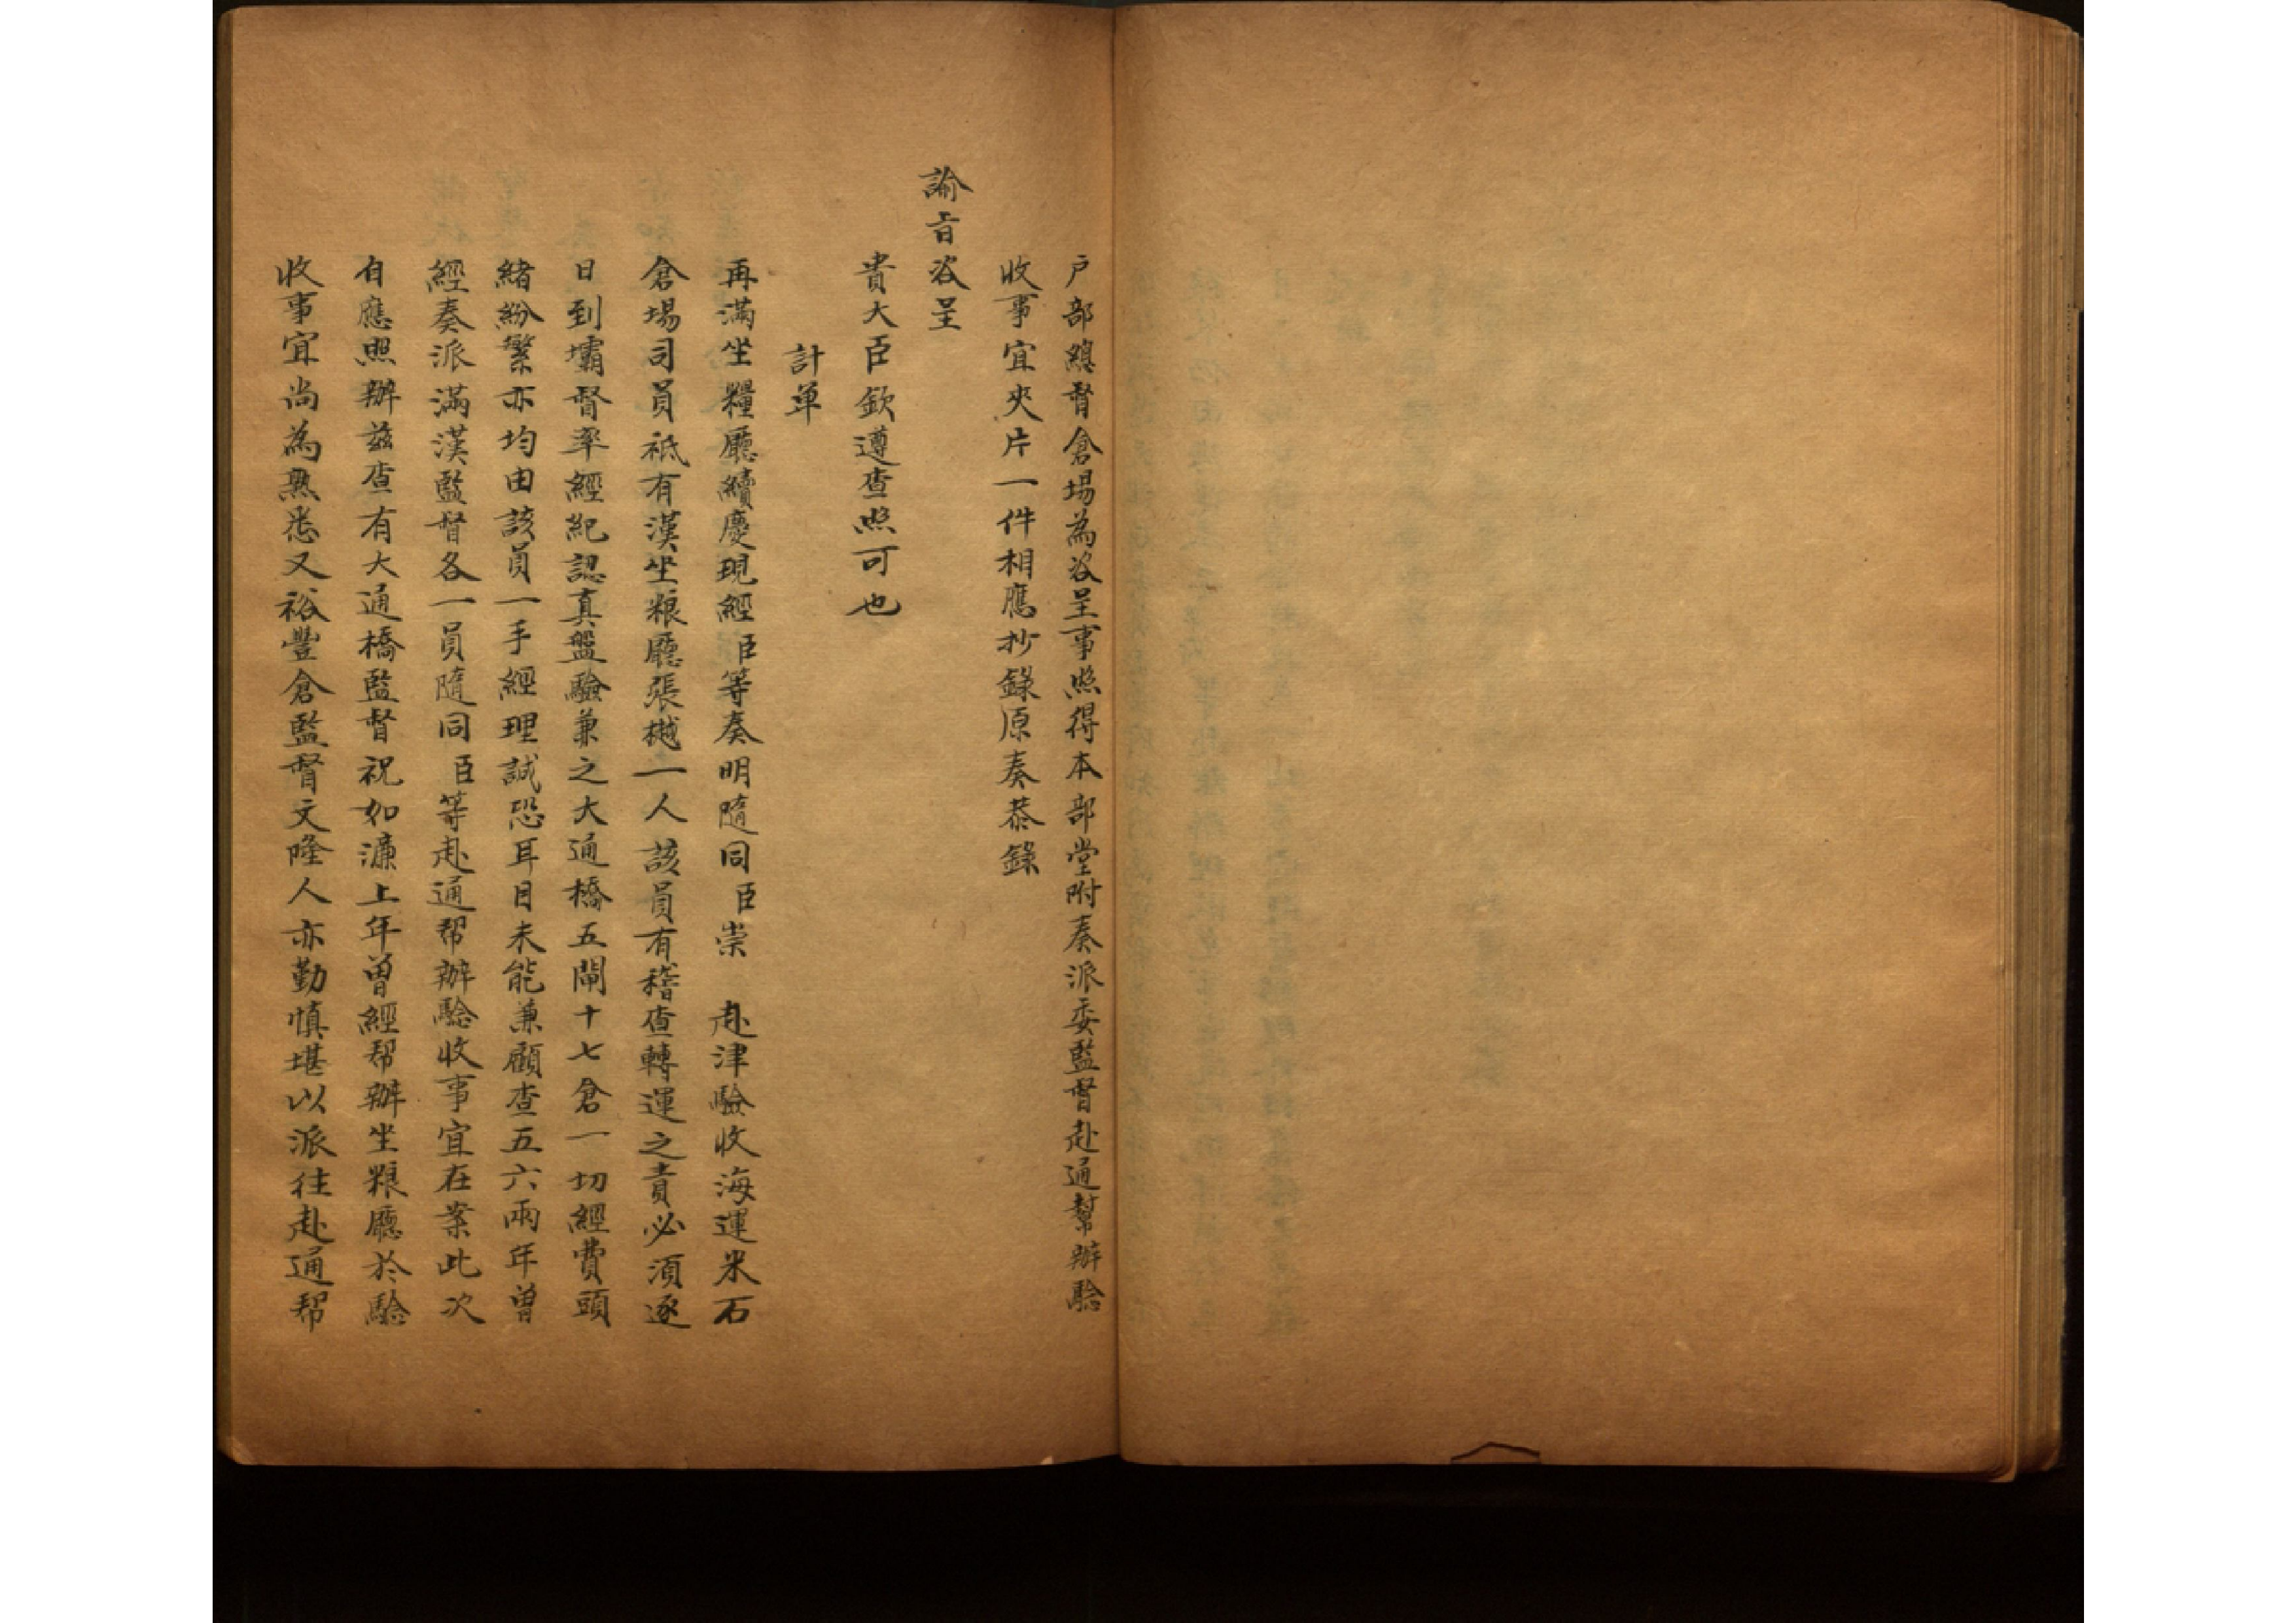 戶部總督倉場為咨呈事照得本部堂附奏派委監督赴通幫辦驗
收事宜夾片一件相應抄錄原奏恭錄
諭旨咨呈
貴大臣欽遵查照可也
計單
再滿坐糧廳續慶現經臣等奏明隨同臣崇 赴津驗收海運米石
倉場司員祗有漢坐粮廳張樾一人該員有稽查轉運之責必須逐
日到壩督率經紀認真盤驗兼之大通橋五閘十七倉一切經費頭
緒紛繁亦均由該員一手經理誠恐耳目未能兼顧查五六兩年曾
經奏派滿漢監督各一員隨同臣等赴通帮辦驗收事宜在案此次
自應照辦茲查有大通橋監督祝如濂上年曾經帮辦坐粮廳於驗
收事宜尚為熟悉又裕豐倉監督文隆人亦勤慎堪以派往赴通帮